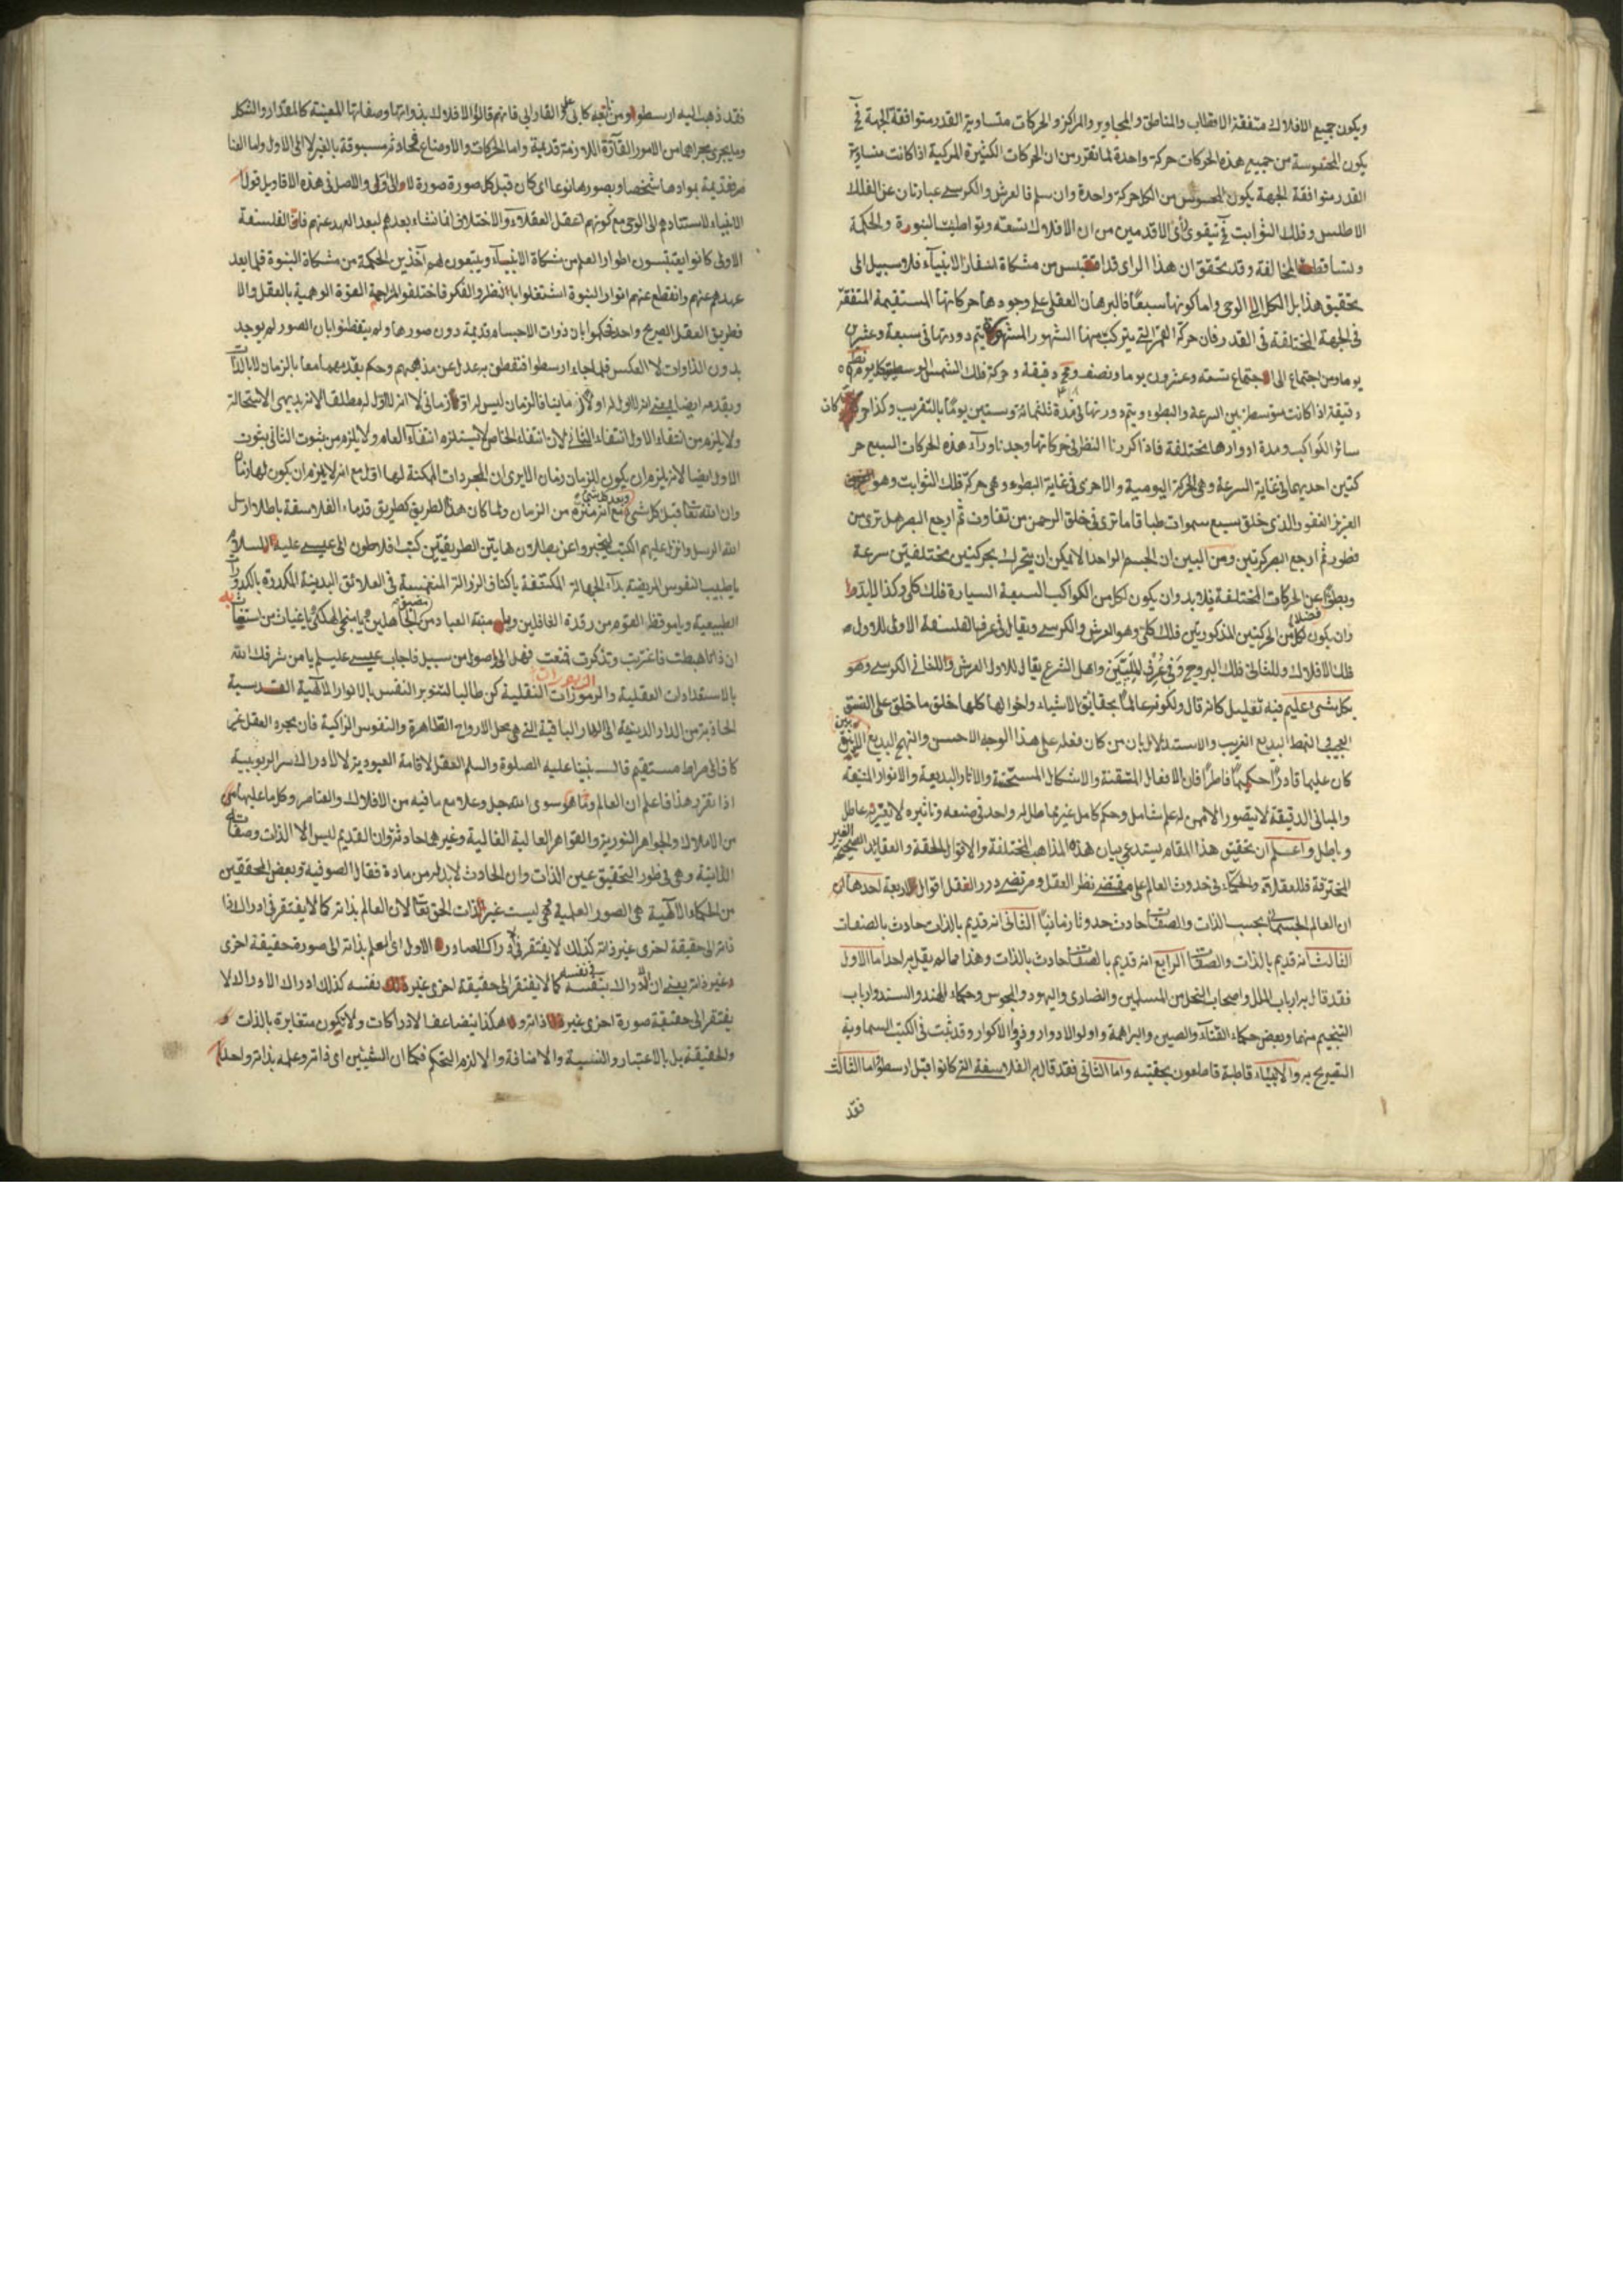 ويكون جميع الافلاك متفقة الاقطاب والمناطق والمحاوير والمراكز والحركات متساوية القدر متوافقة الجهة فح
يكون المحسوسة من جميع هذه الحركات حركة واحدة لما تقرر من ان الحركات الكثيرة المركبة اذا كانت متساوية
القدر متوافقة الجهة يكون المحسوس من الكل حركة واحدة وان سلم فالعرش والكرسي عبارتان عن الفلك
الاطلس وفلك الثوابت فح يتقوى رأى الاقدمين من ان الافلاك تسعة وتواطئت النبوة والحكمة
وتساقطت المخالفة وقد يحقق ان هذا الراى قد اقتبس من مشكاة اسفار الانبيآء فلا سبيل الى
تحقيق هذا بل الكل الى الوحى واما كونها سبعًا فالبرهان العقلى على وجودها حركاتها المستقيمة المتفقة
فى الجهة المختلفة فى القدر فان حركة القمر التى يتركب منها الشهور المشهورة يتم دورتها فى سبعة وعشرين
يوما ومن اجتماع الى اجتماع تسعة وعشرون يوما ونصف و دقيقة وحركة فلك الشمس
دقيقة اذا كانت متوسطة بين السرعة والبطوء ويتم دورتها فى مدة ثلثمائة وستين يومًا بالتقريب وكذا حركات
سائر الكواكب ومدة ادوارها مختلفة فاذا كررنا النظر فى حركاتها وجدنا ورآء هذه الحركات السبع حر
كتين احديهما فى غاية السرعة وهى الحركة اليومية والاخرى فى غاية البطوء وهى حركة فلك الثوابت وهو
العزيز الغفور الذى خلق سبع سموات طباقا ما ترى فى خلق الرحمن من تفاوت ثم ارجع البصر هل ترى من
فطور ثم ارجع البصر كرتين ومن البين ان الجسم الواحد لا يمكن ان يتحرك بحركتين مختلفتين سرعة
وبطؤًا عن الحركات المختلفة فلا بد وان يكون لكل من الكواكب السبعة السيارة فلك كلى وكذا لا بد
وان يكون لكل من الحركتين المذكورتين فلك كلى وهو العرش والكرسى ويقال فى عرف الفلسفة الاولى للاول
فلك الافلاك وللثانى فلك البروج وفى عرف المليين واهل الشرع يقال للاول العرش والثانى الكرسى وهو
بكل شئ عليم فيه تعليل كانه قال ولكونه عالما بحقايق الاشياء واحوالها كلها خلق ما خلق على النسق
العجيب النمط البديع الغريب والاستدلال بان من كان فعله على هذا الوجه الاحسن والنهج البديع
كان عليما قادرًا حكيمًا فاطرًا فان الافعال المتقنة والاشكال المستحسنة والاثار البديعة والانوار
والمبانى الدقيقة لا يتصور الا ممن له علم شامل وحكم كامل
وباطل واعلم ان تحقيق هذا المقام يستدعى بيان هذه المذاهب المختلفة والاقوال الملحقة والعقايد الصحيحة
فللعقلاء والحكماء فى حدوث العالم على مقتضى نظر العقل ومرتضى درر النقل اقوال اربعة احدها
ان العالم الجسمانى بحسب الذات والصفات حادث حدوثا زمانيًا الثانى انه قديم بالذات حادث بالصفات
الثالث انه قديم بالذات والصفات الرابع انه قديم بالصفات حادث بالذات وهذا مما لم يقل به احد اما الاول
فقد قال به ارباب الملل واصحاب النحل من المسلمين والنصارى واليهود والمجوس وحكماء الهند والسند وارباب
التنجيم منهما وبعض حكماء والصين والبراهمة واولوا الادوار وذووا الاكوار وقد ثبت فى الكتب السماوية
التصريح به والانبياء قاطبة قاطعون بحقيته واما الثانى فقد قال به الفلاسفة التى كانوا قبل ارسطو اما الثالث
فقد
فقد ذهب اليه ارسطو ومن تبعه كابى على والفارابى فانهم قالوا الافلاك بذواتها وصفاتها المعينة كالمقدار والشكل
وما يجرى مجراهما من الامور القآرة اللازمة قديمة واما الحركات والاوضاع فحادثة مسبوقة بالغير لا الى الاول واما العنا
صر فقديمة بموادها شخصا وبصورها نوعا اى كان قبل كل صورة صورة لا الى اولى والاصل فى هذه الاقاويل قول
الانبياء لاستنادهم الى الوحى مع كونهم اعقل العقلاء والاختلاف انما نشاء بعدهم لبعد العهد عنهم فان الفلسفة
الاولى كانوا يقتبسون اطوار العلم من مشكاة الانبيآء ويتبعون لهم آخذين الحكمة من مشكاة النبوة فلما بعد
عهدهم عنهم وانقطع عنهم انوار النبوة اشتغلوا بالنظر والفكر فاختلفوا لمزاحمة القوة الوهمية بالعقل والا
فطريق العقل الصريح واحد فحكموا بان ذوات الاجسام قديمة دون صورها ولم يتفطنوا بان الصور لم يوجد
بدون الذاوات لا العكس فلما جاء ارسطو تفطن به عدل عن مذهبهم وحكم بقدمهما معا بالزمان لا بالذات
ولا يلزم من انتفاء الاول انتفاء الثانى لان انتفاء الخاص لا يستلزم انتفآء العام ولا يلزم من ثبوت الثانى ثبوت
الاول ايضا لانه يلزم ان يكون للزمان زمان الا يرى ان المجردات الممكنة لها اول مع انه لا يلزم ان يكون لها زمان
وان الله تعالى قبل كل شئ وبعد كل شئ مع انه منزه من الزمان ولما كان هذا الطريق كطريق قدماء الفلاسفة باطلا ارسل
الله الرسل وانزل عليهم الكتب ليخبروا عن بطلان هاتين الطريقتين كتب افلاطون الى عيسى عليه السلام
يا طبيب النفوس المريضة بدآء الجهالة المكتنفة باكناف الرذالة المنغمسة فى العلائق البدنية المكدرة بالكدورات
الطبيعية ويا موقظ القوم من رقدة الغافلين ومنبه العباد من الجاهلين ويا منجى الهلكى يا غياث من استغاث
ان ذاتا هبطت فاغتربت وتذكرت فهل الى الوصول من سبيل فاجاب عيسى عليه السلام يا من شرفك الله
بالاستعدادات العقلية والرموزات النقلية كن طالبا لتنوير النفس بالانوار الالهية القدسية
الجاذبة من الدار الدنية الى الدار الباقية التى هى محل الارواح الطاهرة والنفوس الزاكية فان مجرد العقل غير
كاف الى صراط مستقيم قال نبينا عليه الصلوة والسلم العقل لاقامة العبودية لا لادراك سر الربوبية
اذا تقرر هذا فاعلم ان العالم وما هو سوى الله جل وعلا مع ما فيه من الافلاك والعناصر وكل ما عليها
من الاملاك والجواهر النورية والقواهر العالية الغالية وغيرها حادثة وان القديم ليس الا الذات وصفاته
الذاتية وهى فى طور التحقيق عين الذات وان الحادث لا بد له من مادة فقال الصوفية وبعض المحققين
من الحكماء الالهية هى الصور العلمية وهى ليست غير الذات الحق تعالى لان العالم بذاته كما لا يفتقر فى ادراك ذا
ته الى حقيقة اخرى غير ذاته كذلك لا يفتقر فى ادراك الصادر الاول اى العلم بذاته الى صورة حقيقة اخرى
غير ذاته يعنى ان ادراك نفسه كما لا يفتقر الى حقيقة اخرى غير نفسه كذلك ادراك الادراك لا
يفتقر الى حقيقة صورة اخرى غير ذاته وهكذا يتضاعف الادراكات ولا يكون متغايرة بالذات و
والحقيقة بل بالاعتبار والنسبة والاضافة والا لزم التحكم فكما ان الشيئين اى ذاته وعلمه بذاته واحد